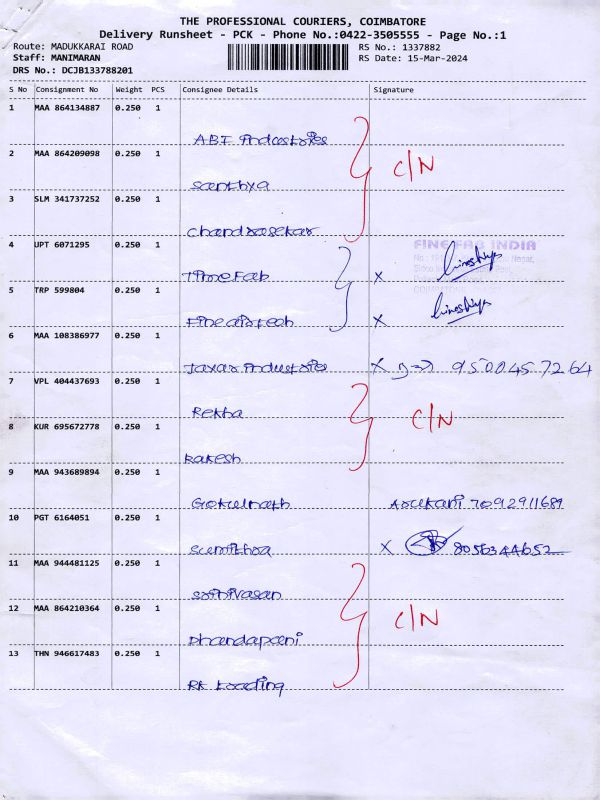 THE PROFESSIONAL COURIERS, COIMBATORE
Delivery Runsheet - PCK - Phone No.:0422-3505555 - Page No.:1
Route: MADUKKARAI ROAD
RS No.: 1337882
Staff: MANIMARAN
RS Date: 15-Mar-2024
DRS No.: DCJB133788201
S No Consignment No Weight PCS Consignee Details Signature
1 MAA 864134887 0.250 1
ABI Industries
2 MAA 864209098 0.250 1
C/N
Santhya
3 SLM 341737252 0.250 1
Chandrasekar
4 UPT 6071295 0.250 1
FINE FAB INDIA
Fine Fab X
5 TRP 599804 0.250 1
X
6 MAA 108386977 0.250 1
Jaxar Industries X 9500457264
7 VPL 404437693 0.250 1
Rekha
8 KUR 695672778 0.250 1
C/N
Rakesh
9 MAA 943689894 0.250 1
Gokulnath Arukani 7092911689
10 PGT 6164051 0.250 1
Sumithra X 8056344652
11 MAA 944481125 0.250 1
Srinivasan
12 MAA 864210364 0.250 1
C/N
Dhandapani
13 THN 946617483 0.250 1
RK Loading